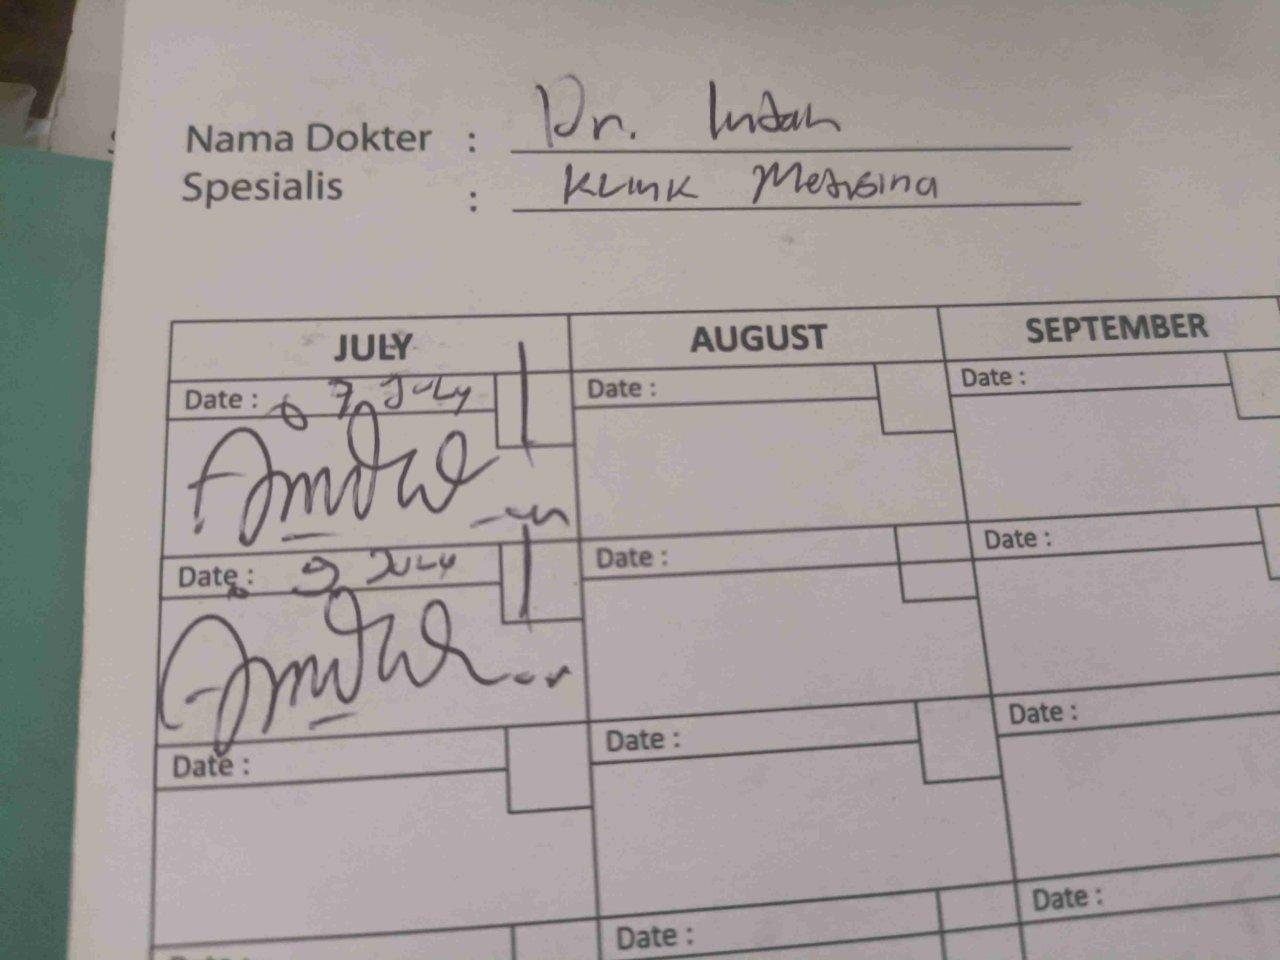 Nama Dokter : Dr. Indah
Spesialis : Klinik
JULY AUGUST SEPTEMBER
Date : 7 July Date : Date :
Date : 9 July Date : Date :
Date : Date : Date :
Date : Date :